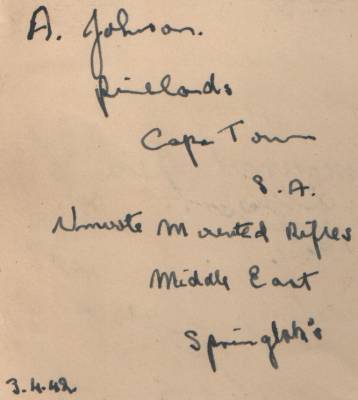 A. Johnson.
Pinelands
Cape Town
S.A.
Umvote Mounted Rifles
Middle East
Springbok's
3.4.42